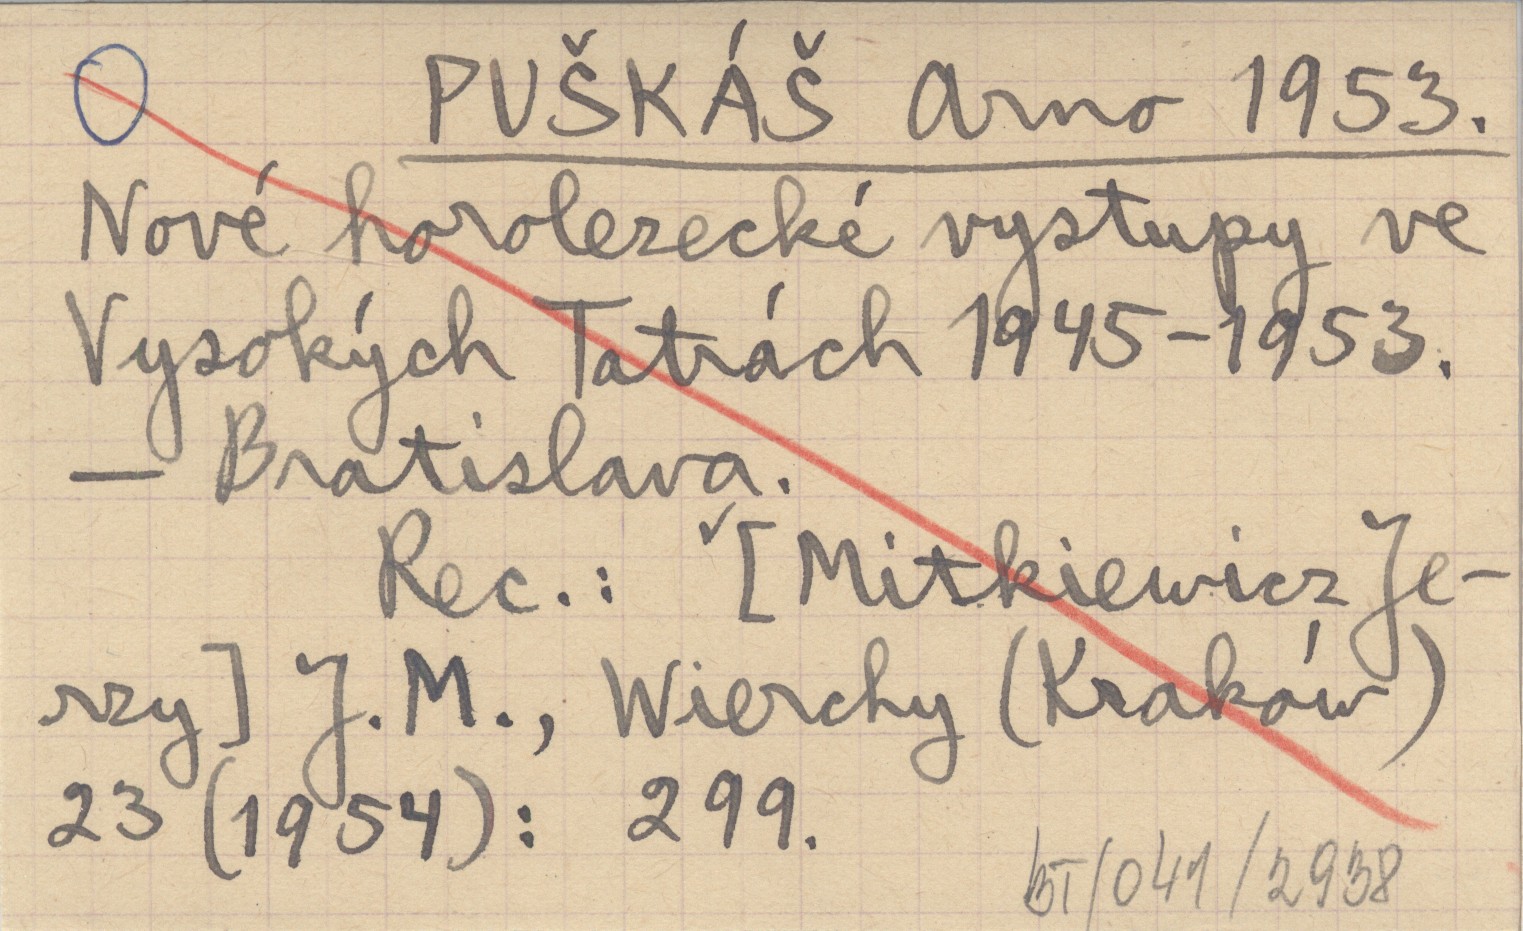 PUŠKÁŠ Arno 1953.
Nové horolezecké vystupy ve
Vysokých Tatrách 1945-1953.
— Bratislava.
Rec.: ˇ[Mitkiewicz Je-
rzy] J.M., Wierchy (Kraków)
23 (1954): 299.
BT/041/2938